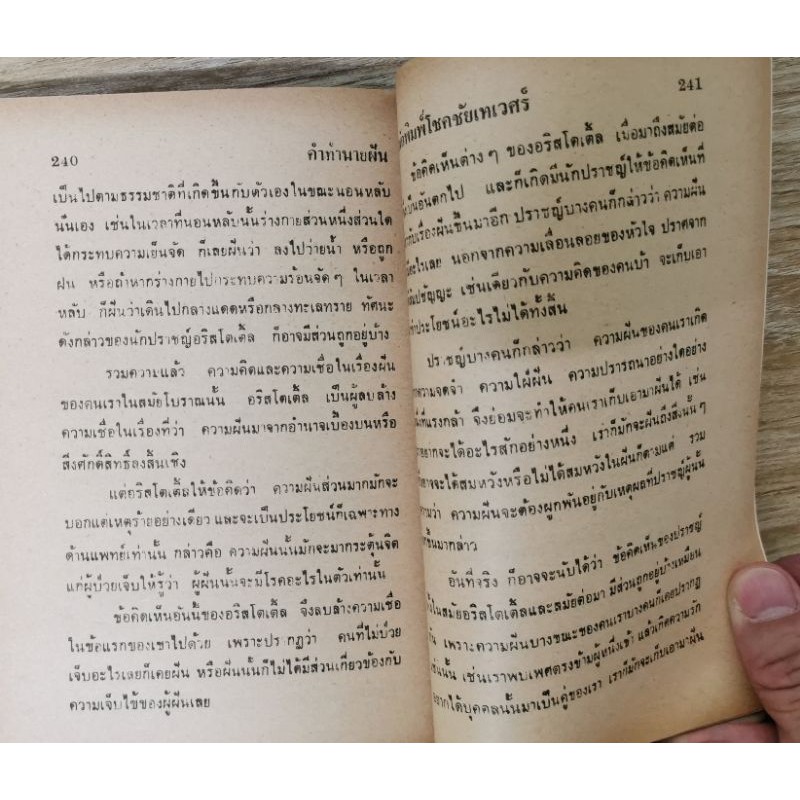 240
คำทำนายฝัน
เป็นไปตามธรรมชาติที่เกิดขึ้นกับตัวเองในขณะนอนหลับ
นั่นเอง เช่นในเวลาที่นอนหลับนั้นร่างกายส่วนหนึ่งส่วนใด
ได้กระทบความเย็นจัด ก็เลยฝันว่า ลงไปว่ายน้ำ หรือถูก
ฝน หรือถ้าหากร่างกายไปกระทบความร้อนจัดๆ ในเวลา
หลับ ก็ฝันว่าเดินไปกลางแดดหรือกลางทะเลทราย ทัศนะ
ดังกล่าวของนักปราชญ์อริสโตเติ้ล ก็อาจมีส่วนถูกอยู่บ้าง
รวมความแล้ว ความคิดและความเชื่อในเรื่องฝัน
ของคนเราในสมัยโบราณนั้น อริสโตเติ้ล เป็นผู้ลบล้าง
ความเชื่อในเรื่องที่ว่า ความฝันมาจากอำนาจเบื้องบนหรือ
สิ่งศักดิ์สิทธิ์ลงสิ้นเชิง
แต่อริสโตเติ้ลให้ข้อคิดว่า ความฝันส่วนมากมักจะ
บอกแต่เหตุร้ายอย่างเดียว และจะเป็นประโยชน์ก็เฉพาะทาง
ด้านแพทย์เท่านั้น กล่าวคือ ความฝันนั้นมักจะมากระตุ้นจิต
แก่ผู้ป่วยเจ็บให้รู้ว่า ผู้ฝันนั้นจะมีโรคอะไรในตัวเท่านั้น
ข้อคิดเห็นอันนี้ของอริสโตเติ้ล จึงลบล้างความเชื่อ
ในข้อแรกของเขาไปด้วย เพราะปรากฏว่า คนที่ไม่ป่วย
เจ็บอะไรเลยก็เคยฝัน หรือฝันนั้นก็ไม่ได้มีส่วนเกี่ยวข้องกับ
ความเจ็บไข้ของผู้ฝันเลย
241
พิมพ์โชคชัยเทเวศร์
ข้อคิดเห็นต่างๆ ของอริสโตเติ้ล เมื่อมาถึงสมัยต่อ
เป็นอันตกไป และก็เกิดมีนักปราชญ์ให้ข้อคิดเห็นที่
กับเรื่องฝันขึ้นมาอีก ปราชญ์บางคนก็กล่าวว่า ความฝัน
อะไรเลย นอกจากความเลื่อนลอยของหัวใจ ปราศจาก
ปรัญญะ เช่นเดียวกับความคิดของคนบ้า จะเก็บเอา
ประโยชน์อะไรไม่ได้ทั้งสิ้น
ปราชญ์บางคนก็กล่าวว่า ความฝันของคนเราเกิด
ความจดจำ ความใฝ่ฝัน ความปรารถนาอย่างใดอย่าง
ที่แรงกล้า จึงย่อมจะทำให้คนเราเก็บเอามาฝันได้ เช่น
อยากจะได้อะไรสักอย่างหนึ่ง เราก็มักจะฝันถึงสิ่งนั้นๆ
อาจจะได้สมหวังหรือไม่ได้สมหวังในฝันก็ตามแต่ รวม
ความว่า ความฝันจะต้องผูกพันอยู่กับเหตุผลที่ปราชญ์ผู้นั้น
ขึ้นมากล่าว
อันที่จริง ก็อาจจะนับได้ว่า ข้อคิดเห็นของปราชญ์
ในสมัยอริสโตเติ้ลและสมัยต่อมา มีส่วนถูกอยู่บ้างเหมือน
กัน เพราะความฝันบางขณะของคนเราบางคนก็เคยปรากฏ
เช่นนั้น เช่นเราพบเพศตรงข้ามผู้หนึ่งเข้า แล้วเกิดความรัก
อยากได้บุคคลนั้นมาเป็นคู่ของเรา เราก็มักจะเก็บเอามาฝัน